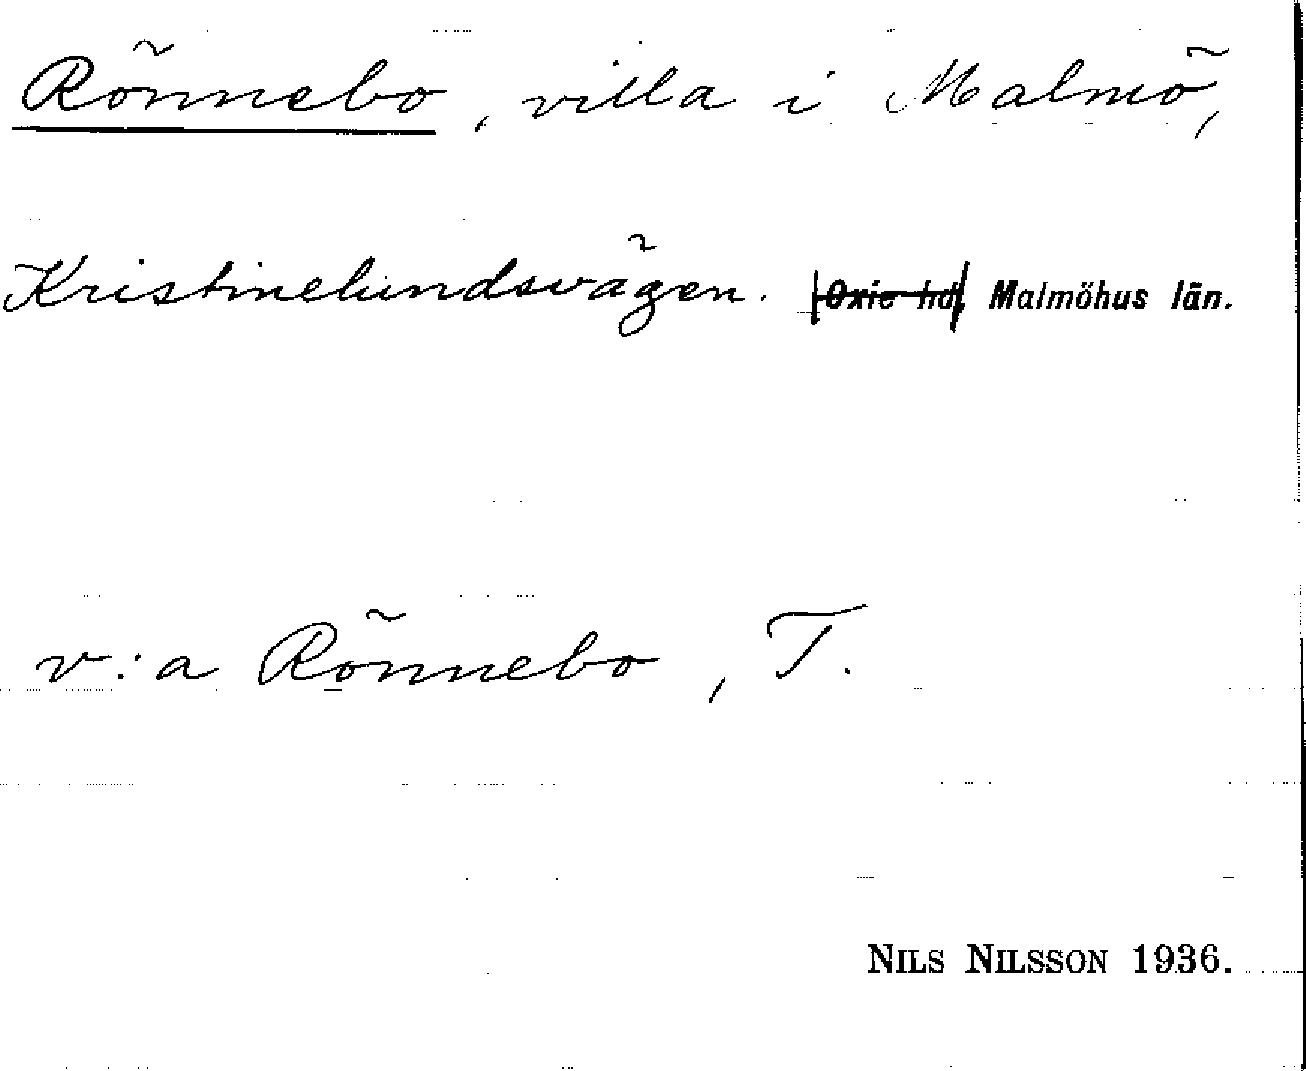 Rönnebo, villa i Malmö,
Kristinelundsvägen. Oxie hd, Malmöhus län.
v:a Rönnebo, T.
NILS NILSSON 1936.